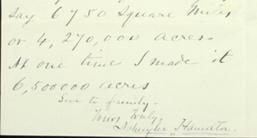 say 6750 Square Miles
or 4,270,000 acres.
At one time I made it
6,500,000 acres
Yours truly,
Schuyler Hamilton